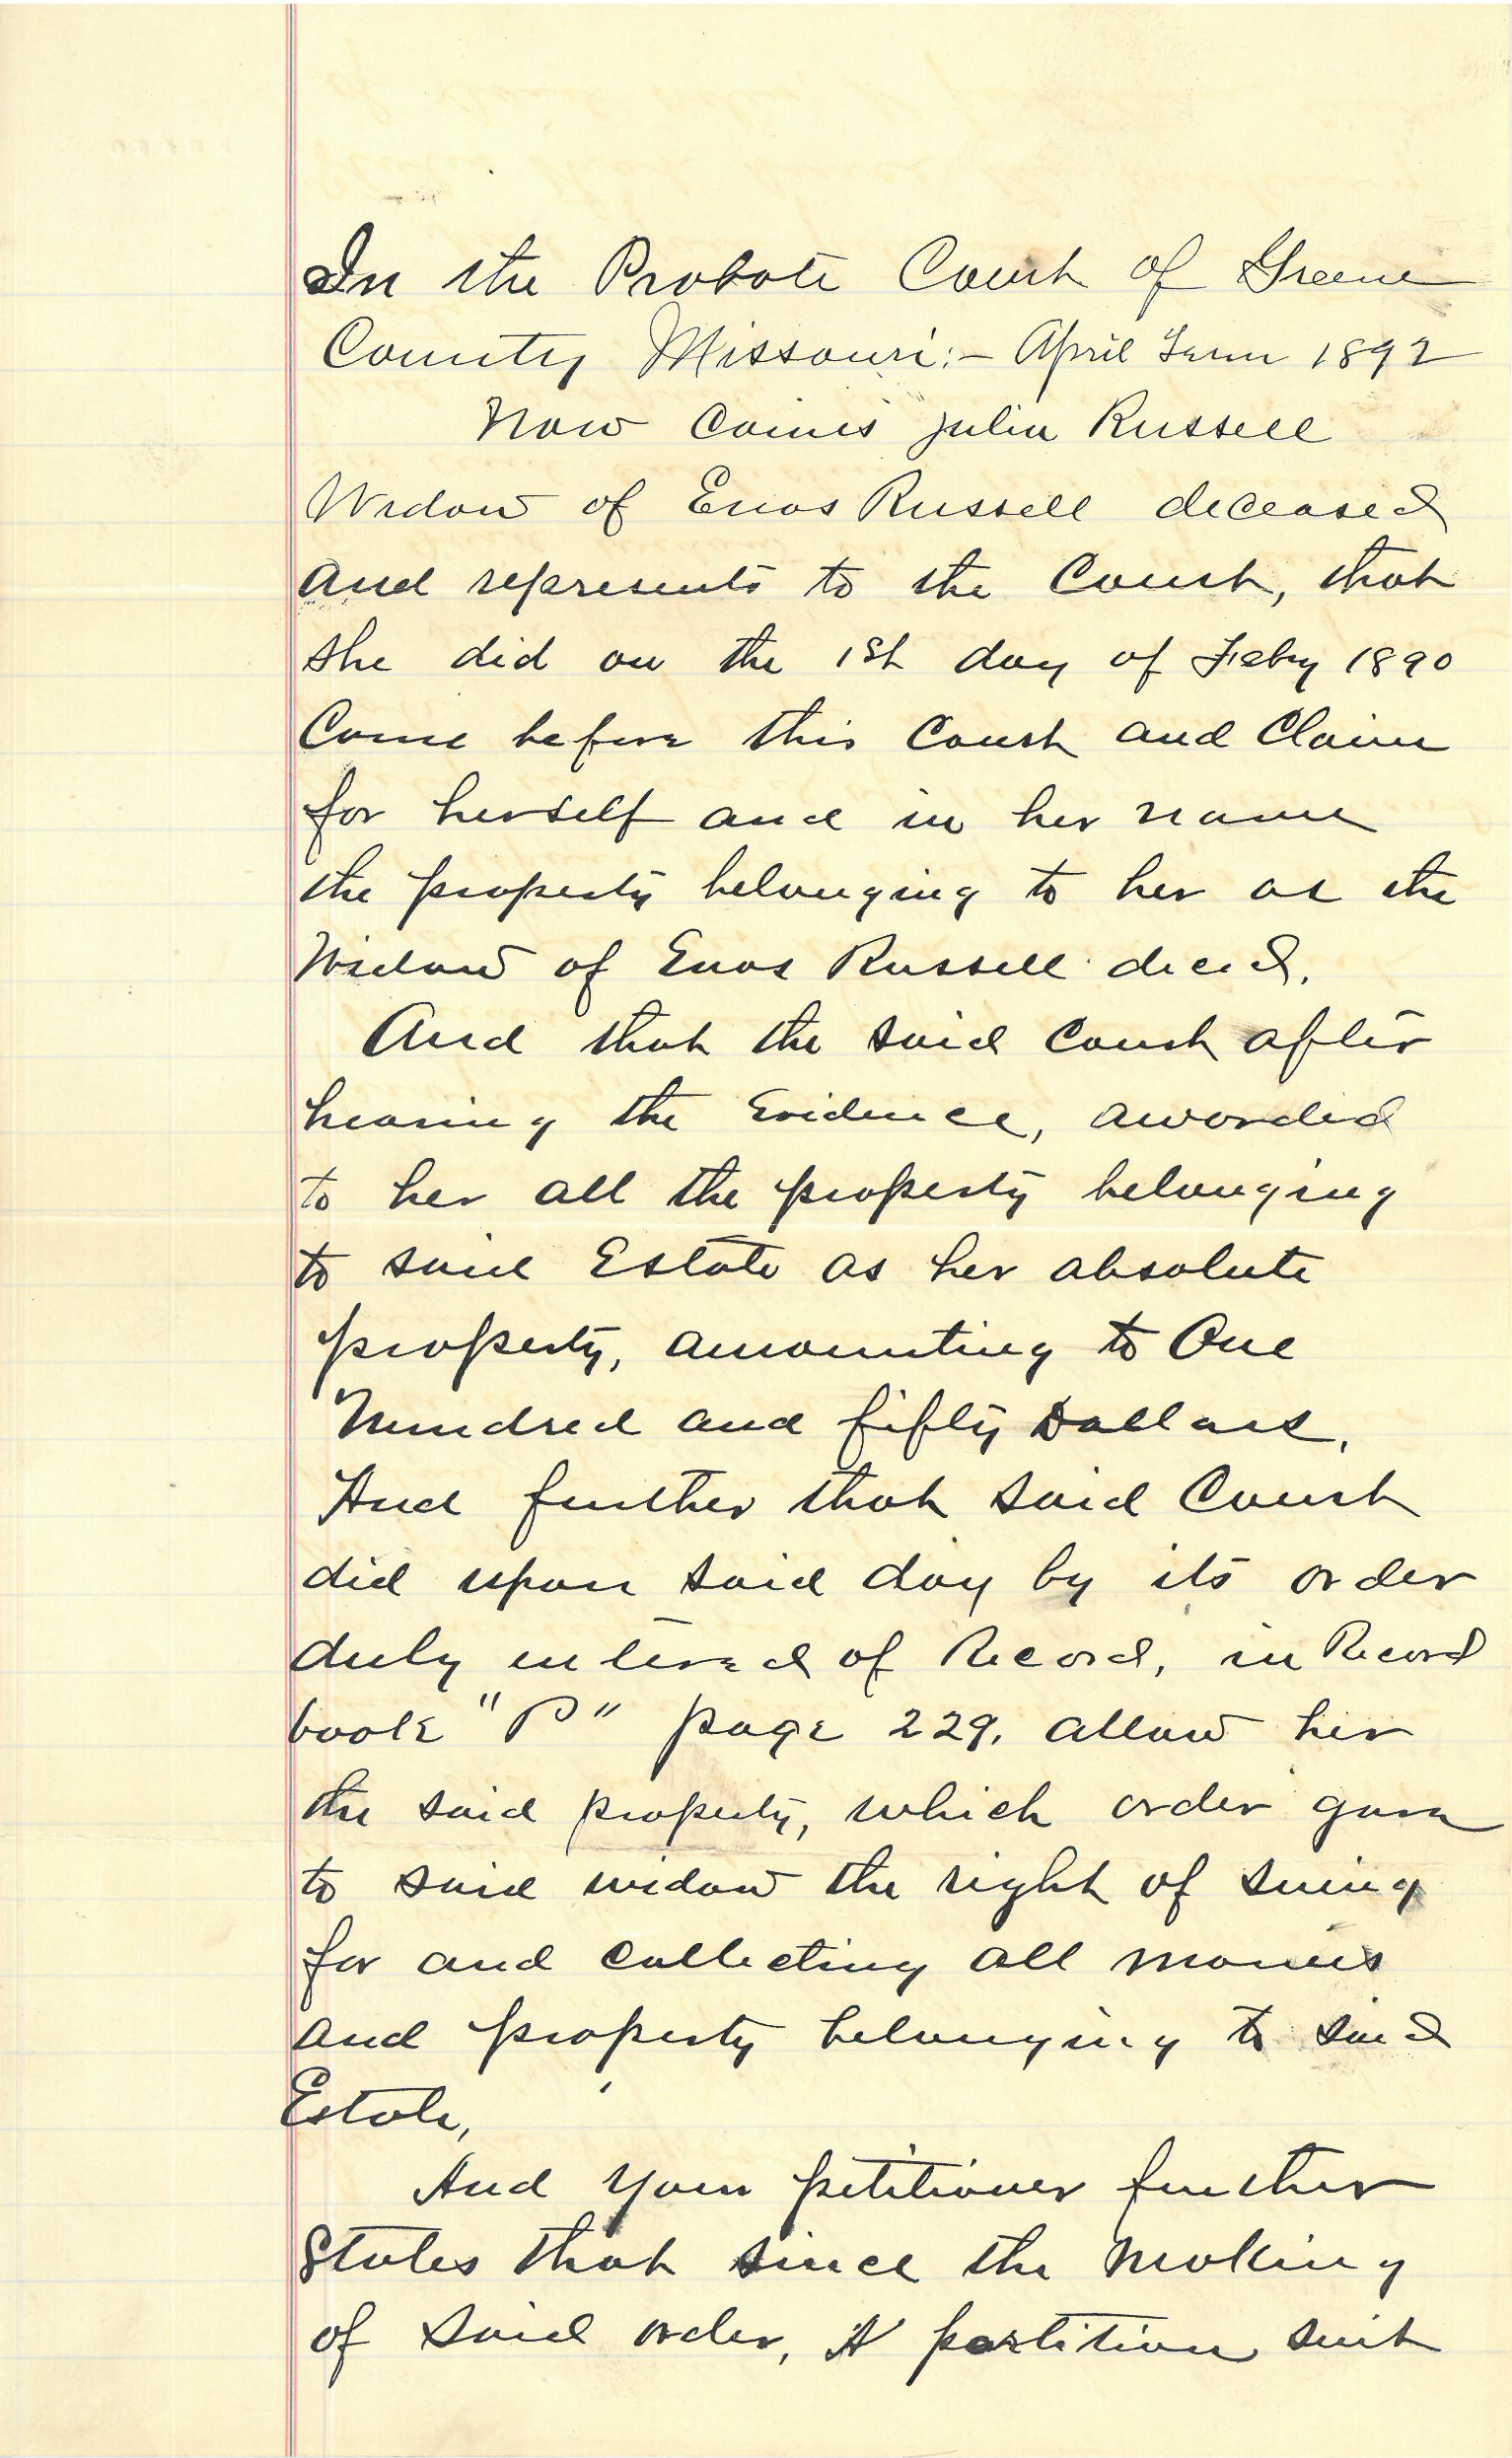 In the Probate Court of Greene
County Missouri:- April Term 1892
Now comes Julia Russell
Widow of Enos Russell deceased
and represents to the Court, that
she did on the 1st day of Feby 1890
Come before this Court and Claim
for herself and in her name
the property belonging to her as the
Widow of Enos Russell decd.
And that the said Court after
hearing the Evidence, awarded
to her all the property belonging
to said Estate as her absolute
property, amounting to One
Hundred and fifty Dollars.
And further that said Court
did upon said day by its order
duly entered of Record, in Record
book "P" page 229. allow her
the said property, which order gave
to said widow the right of suing
for and collecting all monies
and property belonging to said
Estate,
And your petitioner further
States that since the making
of said order, A partition suit